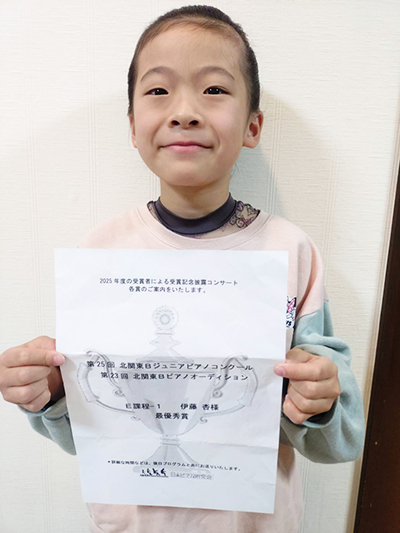 2025年度の受賞者による受賞記念披露コンサート
各賞のご案内をいたします。
第25回 北関東Bジュニアピアノコンクール
第23回 北関東Bピアノオーディション
E課程-1 伊藤 杏様
最優秀賞
*詳細な時間などは、後日プログラムと共にお送りいたします。